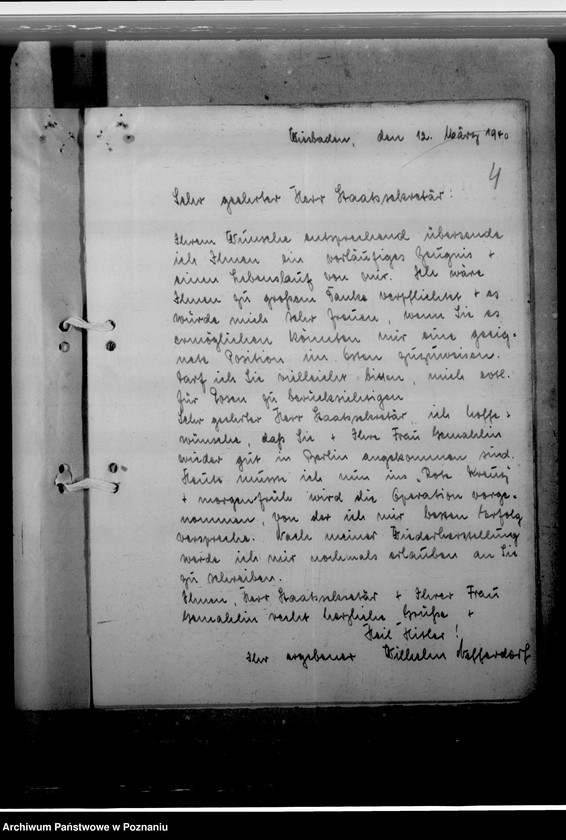 Wiesbaden, den 12. März 1940
4
Sehr geehrter Herr Staatssekretär:
Ihrem Wunsche entsprechend übersende
ich Ihnen ein vorläufiges Zeugnis +
einen Lebenslauf von mir. Ich wäre
Ihnen zu großem Danke verpflichtet + es
würde mich sehr freuen, wenn Sie es
ermöglichen könnten mir eine geeig-
nete Position im Osten zuzuweisen.
Darf ich Sie vielleicht bitten, mich evtl.
für Posen zu berücksichtigen
Sehr geehrter Herr Staatssekretär, ich hoffe +
wünsche, daß Sie + Ihre Frau Gemahlin
wieder gut in Berlin angekommen sind.
Heute musste ich nun ins „Rote Kreuz"
+ morgen früh wird die Operation vorge-
nommen, von der ich mir besten Erfolg
verspreche. Nach meiner Wiederherstellung
werde ich mir nochmals erlauben an Sie
zu schreiben.
Ihnen, Herr Staatssekretär + Ihrer Frau
Gemahlin recht herzliche Grüße +
Heil Hitler!
Ihr ergebener Wilhelm
Archiwum Państwowe w Poznaniu